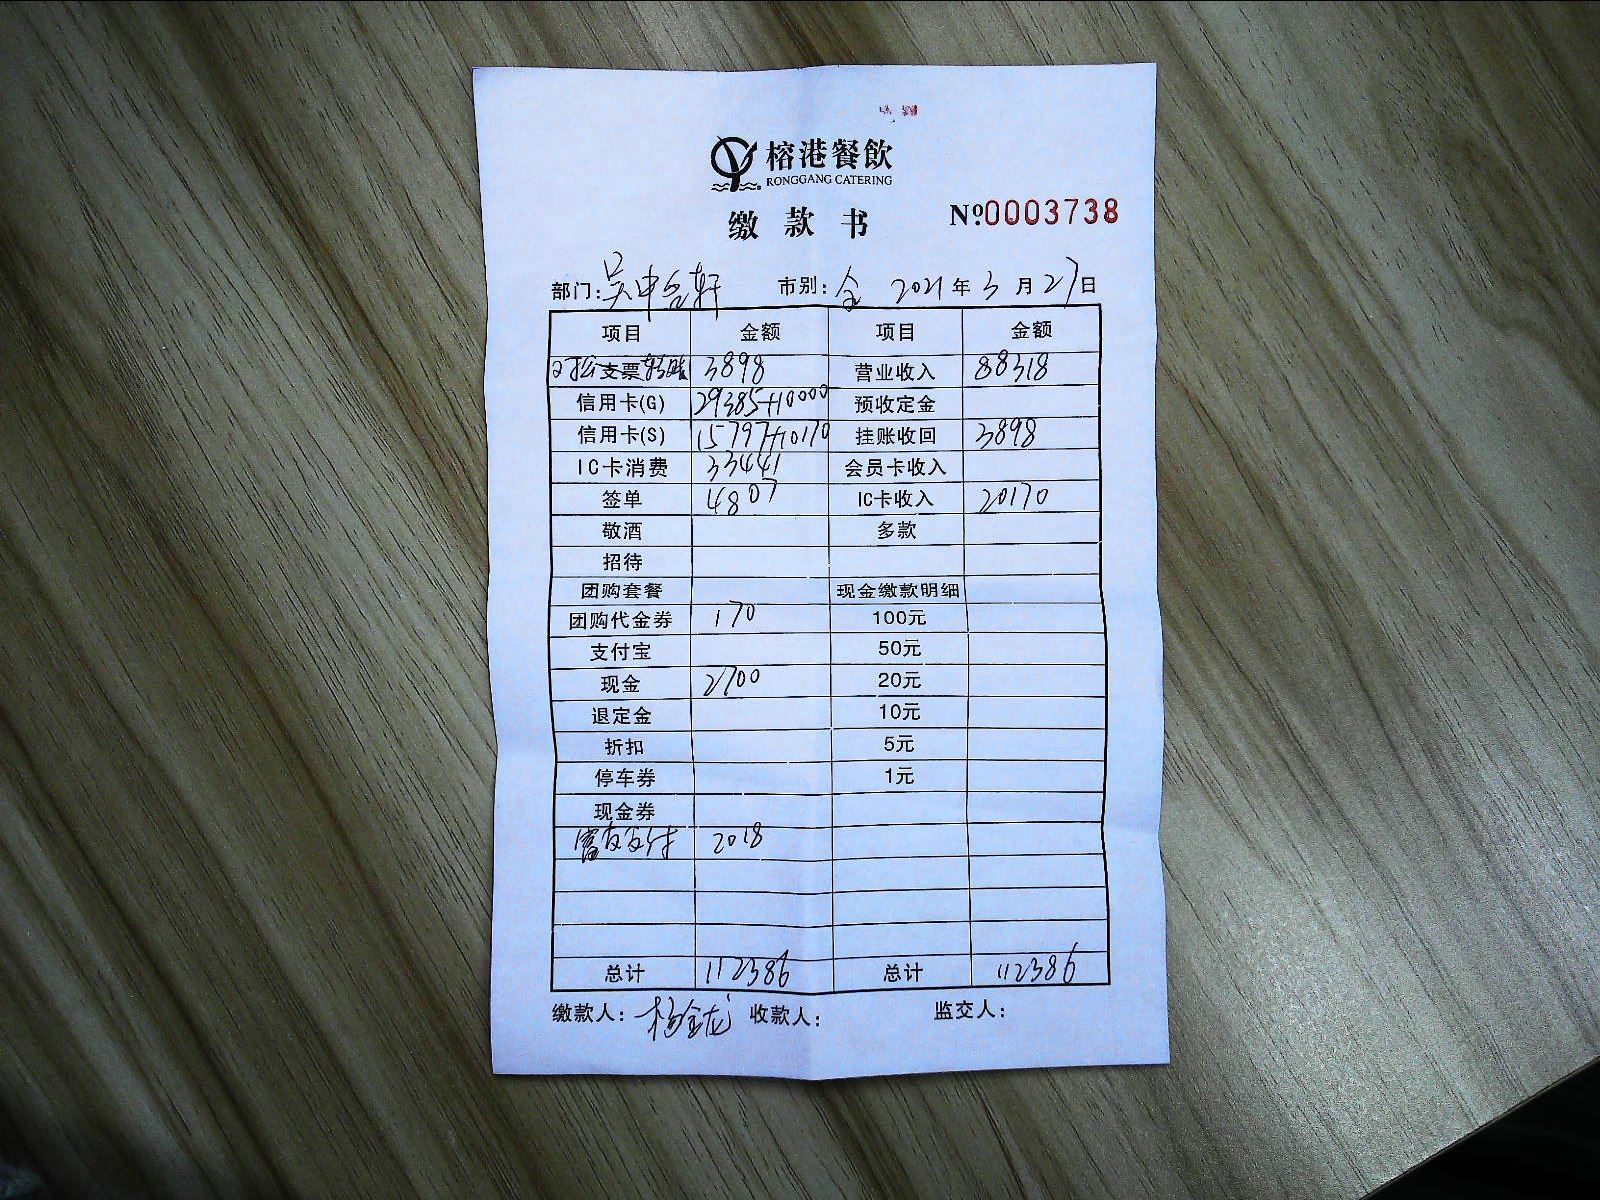 榕港餐飲
RONGGANG CATERING
缴款书 №0003738
部门: 吴中会轩 市别: 全 2021年3月27日
项目 金额 项目 金额
支票转账 3898 营业收入 88318
信用卡(G) 29385+10000 预收定金
信用卡(S) 15797+10170 挂账收回 3898
IC卡消费 33441 会员卡收入
签单 4807 IC卡收入 20170
敬酒 多款
招待
团购套餐 现金缴款明细
团购代金券 170 100元
支付宝 50元
现金 2700 20元
退定金 10元
折扣 5元
停车券 1元
现金券
富友支付 2018
总计 112386 总计 112386
缴款人: 杨金龙 收款人: 监交人: